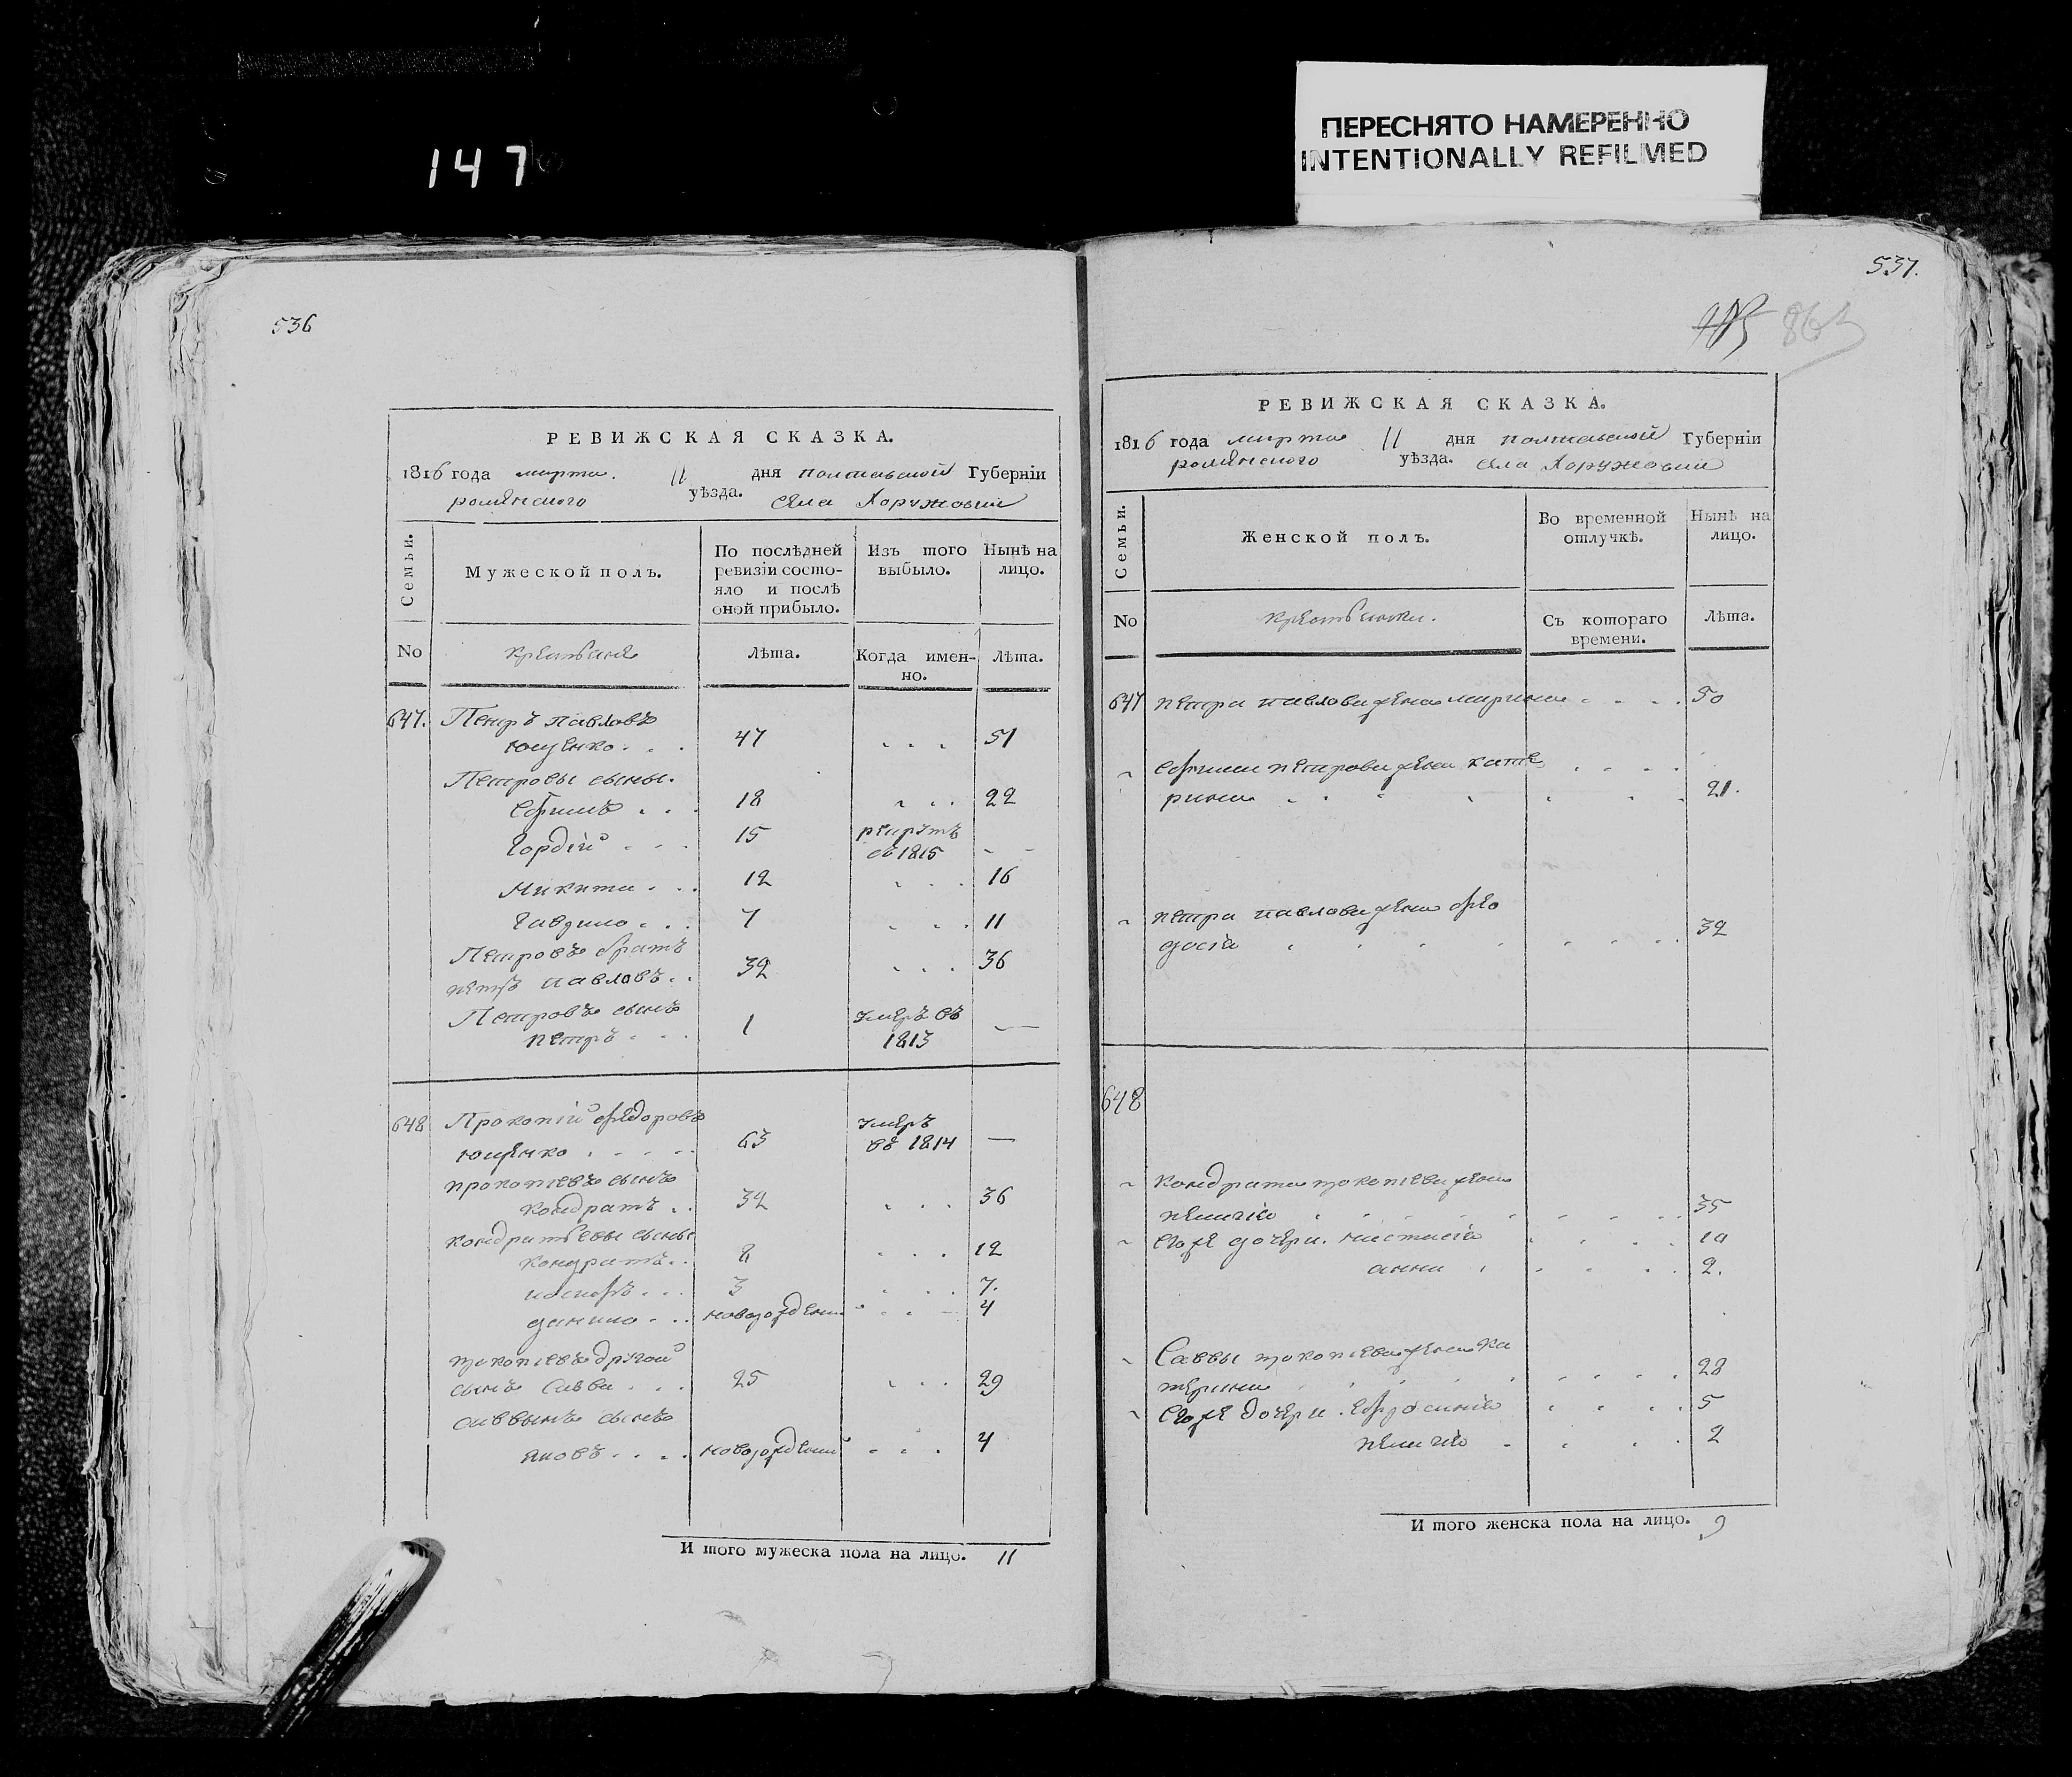 147
ПЕРЕСНЯТО НАМЕРЕННО
INTENTIONALLY REFILMED
536
РЕВИЖСКАЯ СКАЗКА.
1816 года марта 11 дня полтавской Губерніи
роменского уѣзда. села Хоружовки
Семьи.
Мужеской полъ.
По послѣдней ревизіи состояло и послѣ оной прибыло.
Изъ того выбыло.
Нынѣ на лицо.
No
крестьяне
Лѣта.
Когда именно.
Лѣта.
647. Петръ павловъ
ющенко . . 47 . . . 51
Петровы сыны.
Ефимъ . . 18 . . . 22
Гордій . . 15 рекрутъ
въ 1815 - -
Микита . . . 12 . . . 16
Гаврило . . 7 . . . 11
Петровъ братъ
петръ павловъ . . 32 . . . 36
Петровъ сынъ
петръ . . . 1 умеръ въ
1813 —
648 Прокопій федоровъ
ющенко . . . . 63 умеръ
въ 1814 —
прокопіевъ сынъ
кондратъ . . 32 . . . 36
кондратьевы сыны
кондратъ . . 8 . . . 12
иосифъ . . . 3 . . . 7.
данило . . . новорожденный . . . 4
прокопіевъ другой
сынъ Савва . . . 25 . . . 29
саввынъ сынъ
яковъ . . . . новорожденный . . . 4
И того мужеска пола на лицо. 11
537.
РЕВИЖСКАЯ СКАЗКА.
1816 года марта 11 дня полтавской Губерніи
роменского уѣзда. села Хоружовки
Семьи.
Женской полъ.
Во временной отлучкѣ.
Нынѣ на лицо.
No
крестьянки.
Съ котораго времени.
Лѣта.
647 петра павлова жена марина . . . . 50
~ ефима петрова жена кате
рина . . . . . . . 21.
~ петра павлова жена фео
досіа . . . . . . . 32
648
~ Кондрата прокопіева жена
пелагіа . . . . . . . 35
~ Егоже дочери. настасіа . . . . 10
анна . . . . 2.
~ Саввы прокопіева жена ка
терина . . . . . . . 28
~ Егоже дочери. Ефросиніа . . . . 5
пелагіа . . . . 2
И того женска пола на лицо. 9